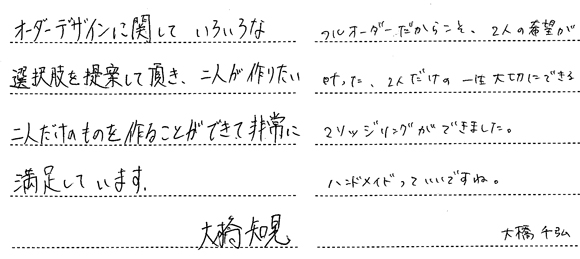 オーダーデザインに関して いろいろな
選択肢を提案して頂き、二人が作りたい
二人だけのものを作ることができて非常に
満足しています.
大橋知晃
フルオーダーだからこそ、2人の希望が
叶った、2人だけの一生大切にできる
マリッジリングができました。
ハンドメイドっていいですね。
大橋千弘